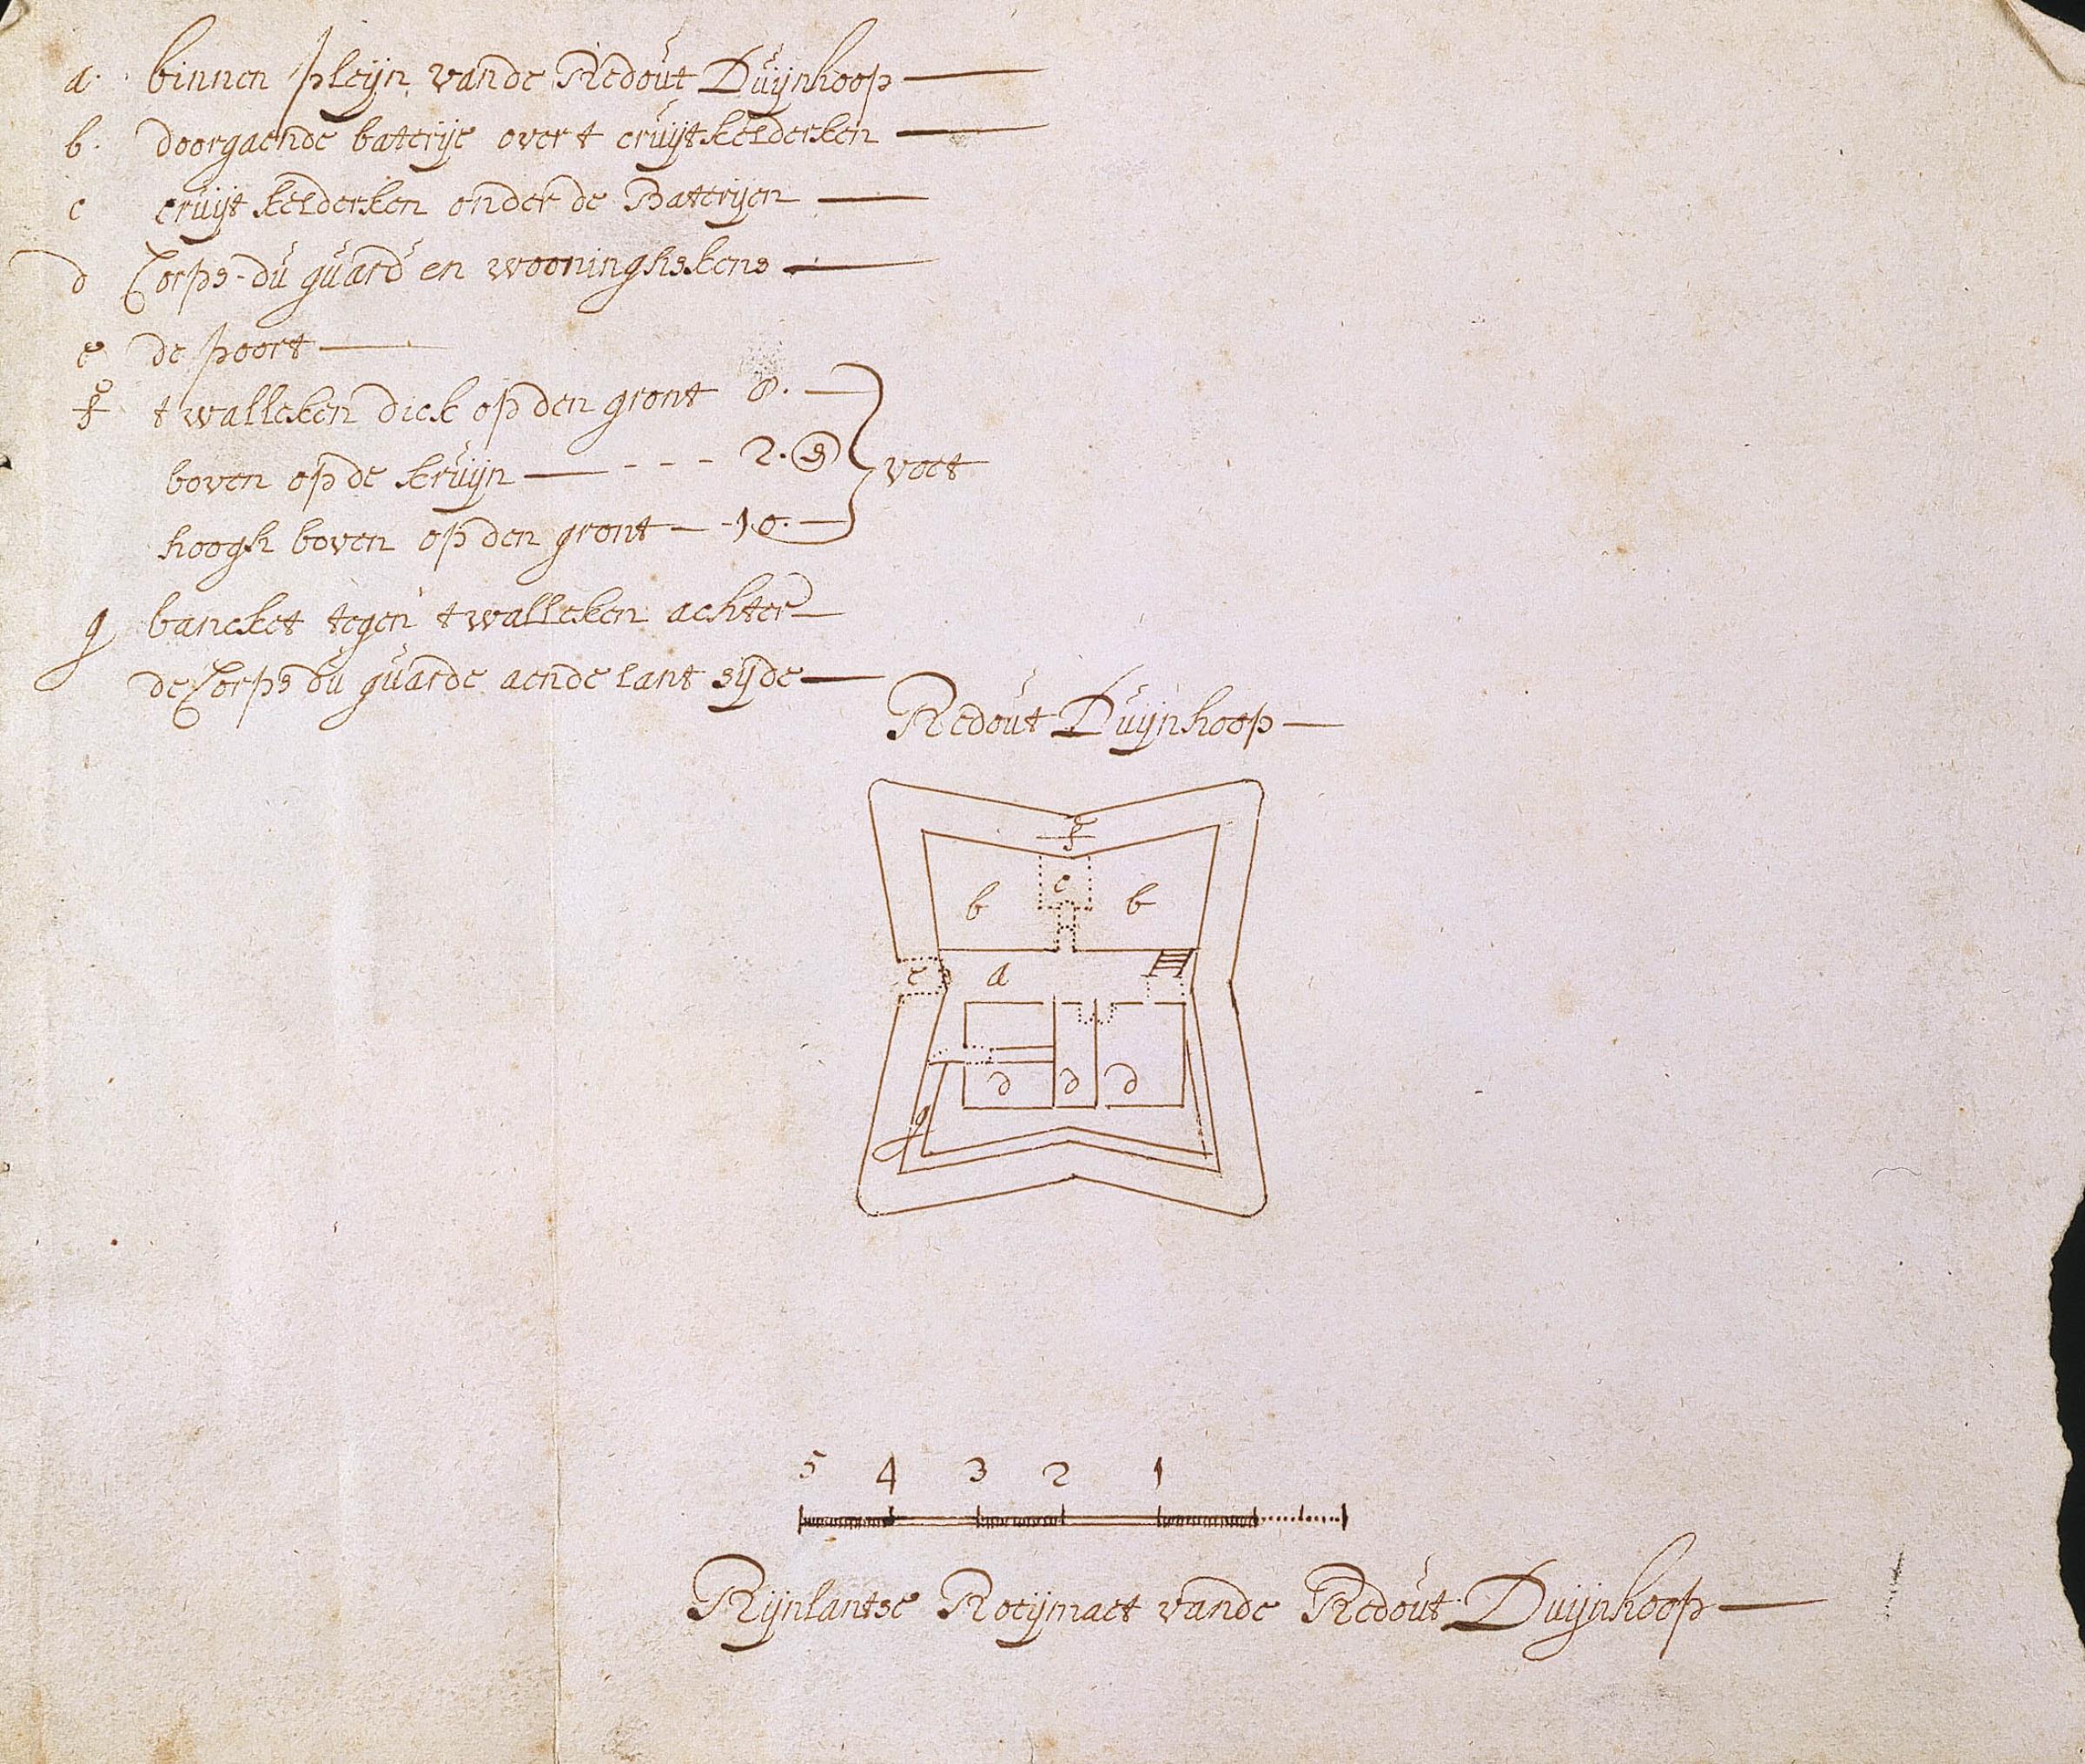 a. binnen pleijn vande Redout Duijnhoop
b. doorgaende baterije over t cruijtkelderken
c cruijt kelderken onder de Baterijen
d Corps-du guard en wooninghskens
e de poort
f t walleken dick op den gront 8.
boven op de kruijn - - - 2. voet
hoogh boven op den gront - 10.
g bancket tegen t walleken achter
de Corps du guarde aende lant sijde
Redout Duijnhoop
f
b c b
e a
d d d
g
5 4 3 2 1
Rijnlantse Roeijmaet vande Redout Duijnhoop